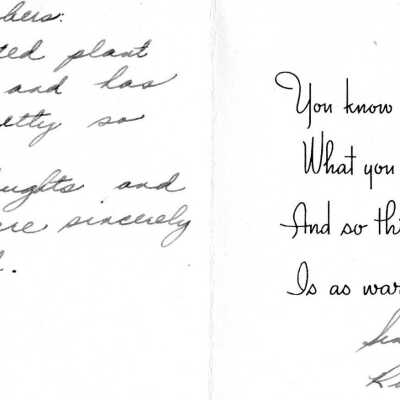 bers:
ted plant
and has
etty so
ughts and
ere sincerely
You know
What you
And so thi
Is as war